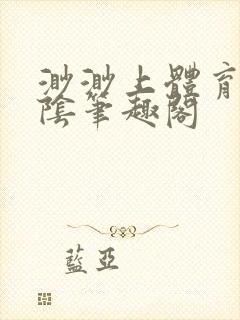 渺渺上體育
陰筆趣閣
藍亞